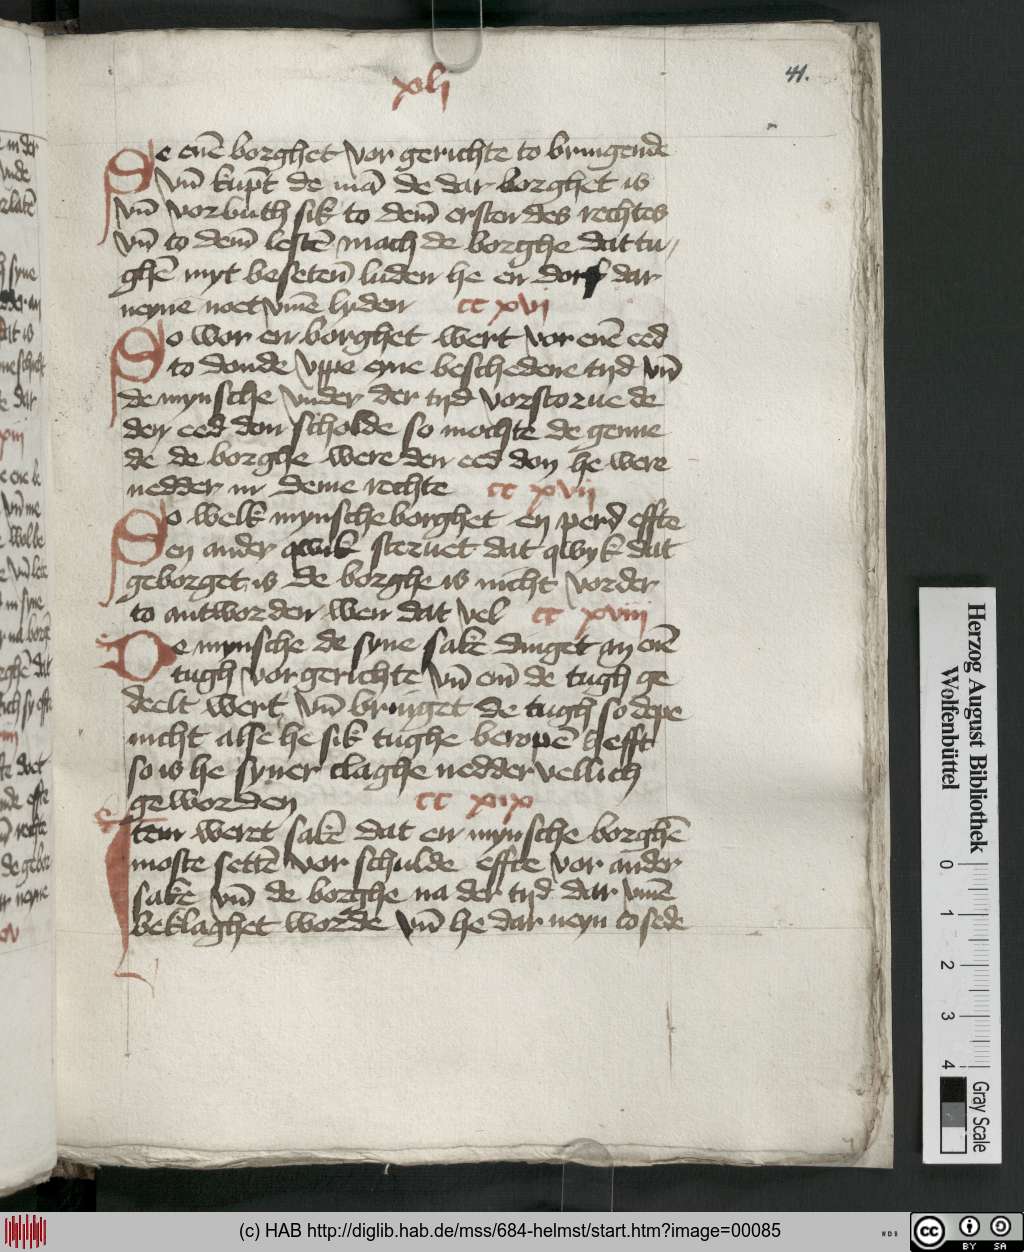 xli
41.
Se enē borghet vor gerichte to bringende
vn̄ kūpt de mā de dar borghet is
vn̄ vorbuth sik to dem̄ ersten des rechtes
vn̄ to dem̄ lestē mach de borghe dat tu/
ghē myt besetē luden he en dorf dar
neyne noet vmē lyden cc xvi
So wor en borghet wert vor enē eed
to donde vppe eyne beschedene tyd vn̄
de mynsche vnder der tyd vorstorue de
den eed don scholde so mochte de genne
de de borghe were den eed don he were
nedder in deme rechte cc xvii
So welk mynsche borghet en perd effte
en ander qwik steruet dat qwyk dat
geborget is de borghe is nicht vorder
to antworden wen dat vel cc xviii
De mynsche de syne sakē dinget an enē
tugh vor gerichte vn̄ em̄ de tugh ge
deelt wert vn̄ bringet de tugh so depe
nicht alse he sik tughe beropē hefft
so is he syner claghe nedder vellich
geworden cc xix
Item weret sakē dat en mynsche borghē
moste settē vor schulde effte vor ander
sakē vn̄ de borghe na der tyd dar vmē
beklaghet worde vn̄ he dar neyn to sede
Herzog August Bibliothek
Wolfenbüttel
0 1 2 3 4
Gray Scale
(c) HAB http://diglib.hab.de/mss/684-helmst/start.htm?image=00085
cc BY SA